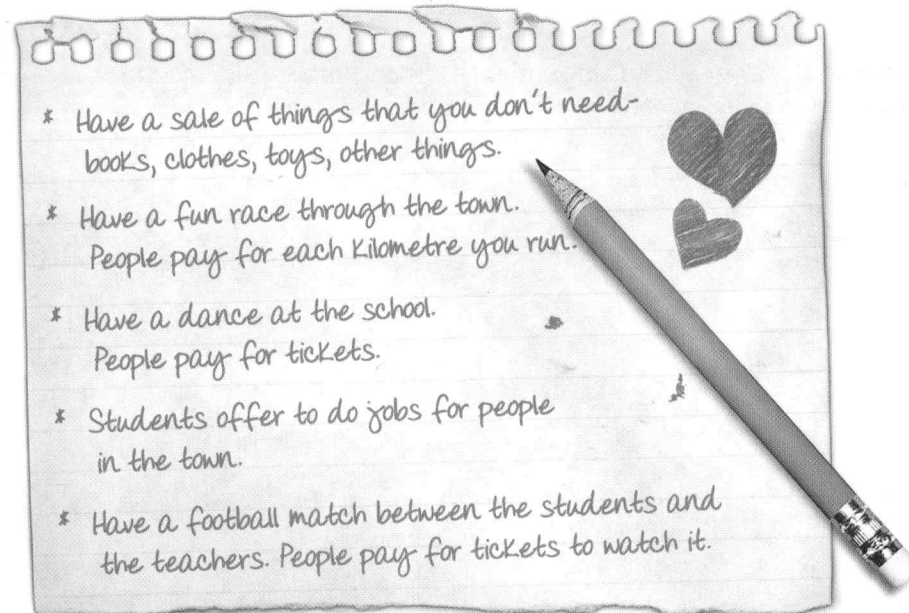 * Have a sale of things that you don't need-
books, clothes, toys, other things.
* Have a fun race through the town.
People pay for each kilometre you run.
* Have a dance at the school.
People pay for tickets.
* Students offer to do jobs for people
in the town.
* Have a football match between the students and
the teachers. People pay for tickets to watch it.